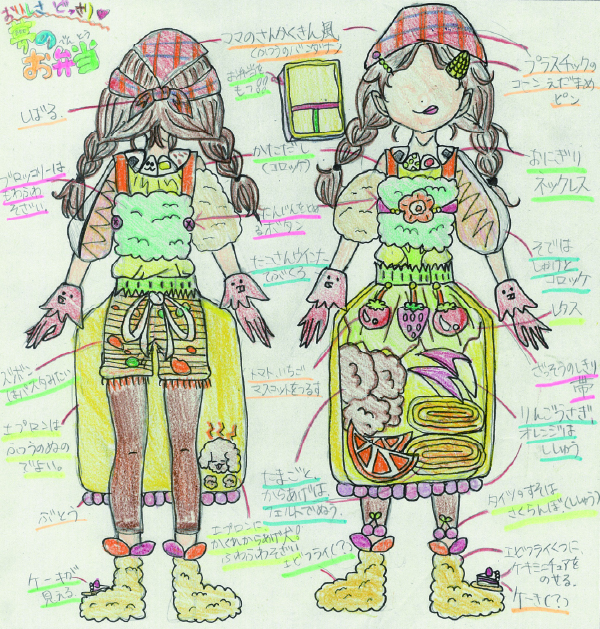 おいしさ どっさり♥
春の
お弁当
ぶんとう
ママのさんかくきん風
(ふつうのバンダナ)
お弁当を
もってる。
プラスチックの
コーン えだまめ
ピン
しばる。
かただし
(コロッケ)
おにぎり
ネックレス
ブロッコリーは
もわもわ
そざい
にんじんをとめ
るボタン
そでは
しゃけと
コロッケ
たこさんウインナ
てぶくろ
レタス
ズボン
はパスタみたい
トマト、いちご
マスコットをつるす
帯
りんごうさぎ
オレンジは
ししゅう
エプロンは
ふつうのぬの
でよい。
たまごと
からあげは
フェルトでぬう。
タイツのすそは
さくらんぼ(ししゅう)
ぶどう
エプロンに
かくれからあげ犬!
ふわふわそざい
エビフライ(?)
エビフライくつに
ケーキミニチュアを
のせる。
ケーキが
見える
ケーキ(?)